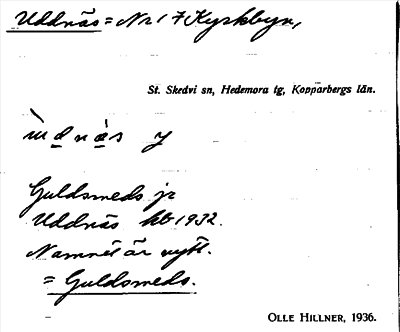 Uddnäs = Nr 17 Kyrkbyn,
St. Skedvi sn, Hedemora tg, Kopparbergs län.
ùdnàs y
Guldsmeds jr
Uddnäs kb 1932.
Namnet är nytt.
= Guldsmeds.
OLLE HILLNER, 1936.